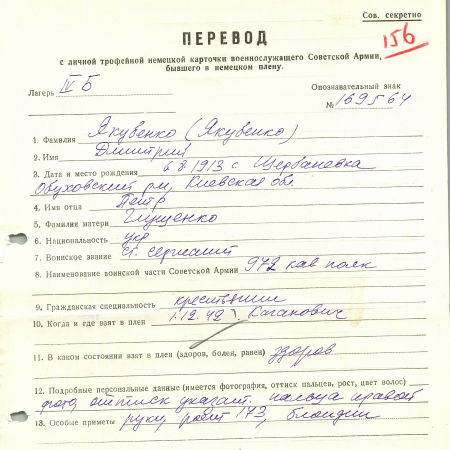 Сов. секретно
156
ПЕРЕВОД
с личной трофейной немецкой карточки военнослужащего Советской Армии,
бывшего в немецком плену.
Лагерь IV Б
Опознавательный знак
№ 169564
1. Фамилия Якубенко (Якувенко)
2. Имя Дмитрий
3. Дата и место рождения 6.8.1913 с Щербановка
Обуховский рн, Киевская обл
4. Имя отца Петр
5. Фамилия матери Глущенко
6. Национальность укр
7. Воинское звание ст. сержант
8. Наименование воинской части Советской Армии 972 кав полк
9. Гражданская специальность крестьянин
10. Когда и где взят в плен 1.12.42 г. Каганович
11. В каком состоянии взят в плен (здоров, болен, ранен) здоров
12. Подробные персональные данные (имеется фотография, оттиск пальцев, рост, цвет волос)
фото, оттиск указат. пальца правой
13. Особые приметы руки, рост 173, блондин